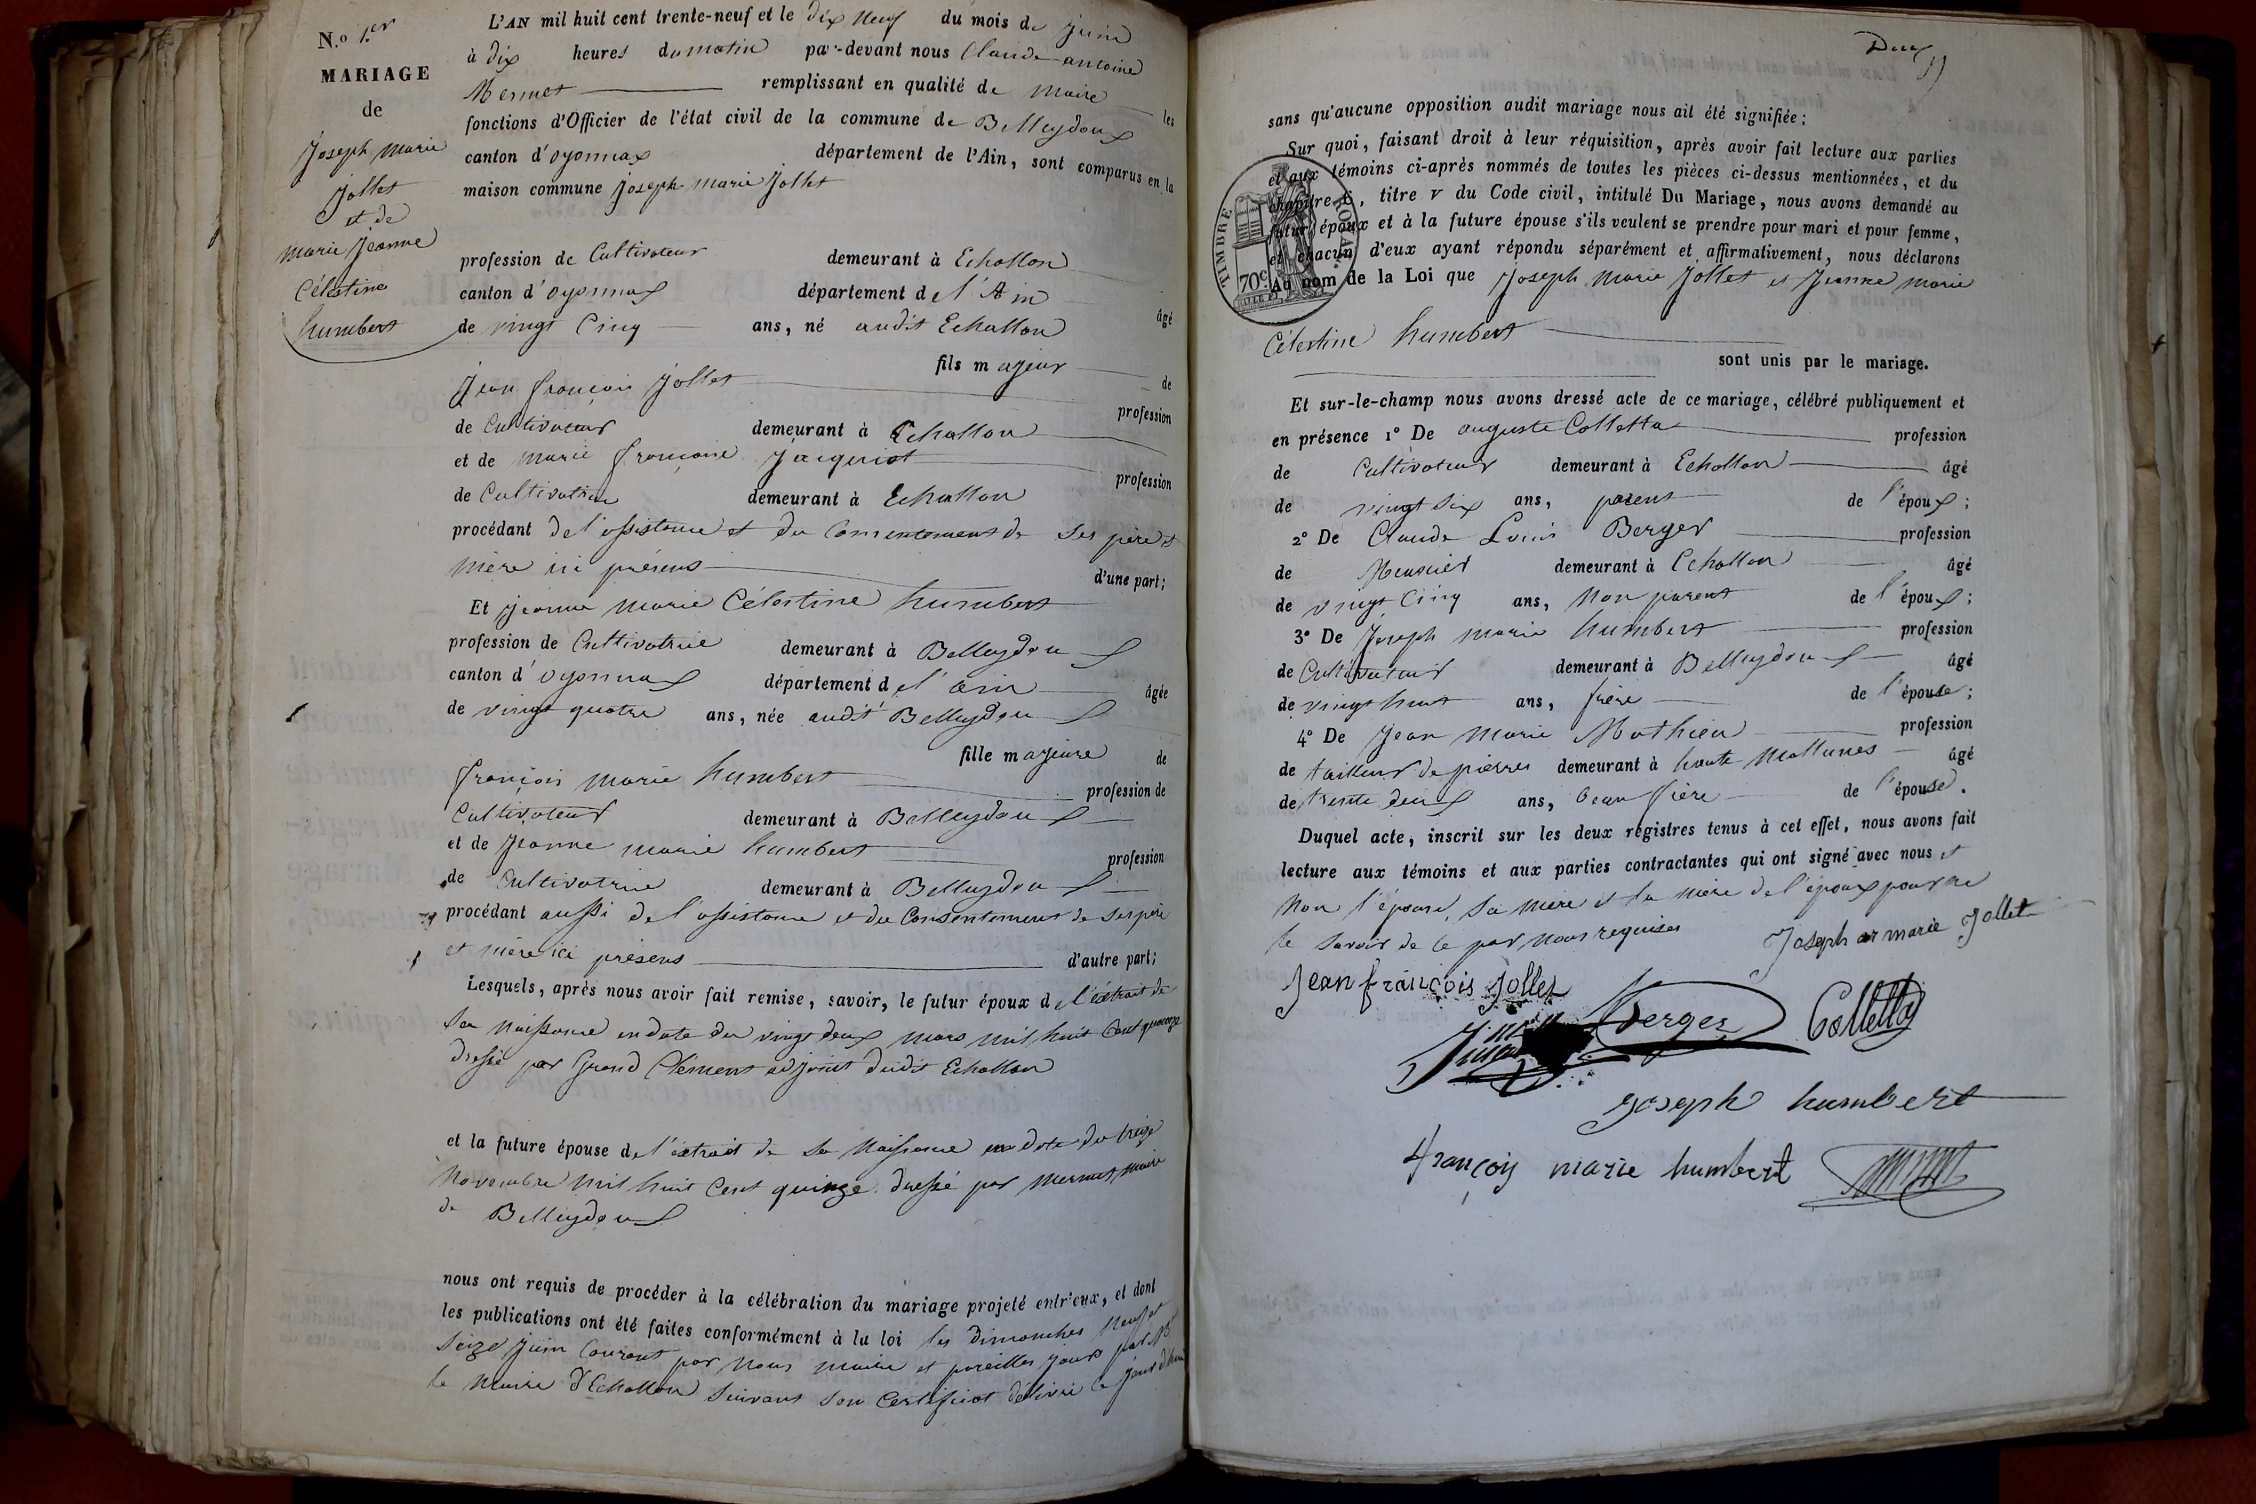 N.o 1.er
MARIAGE
de
Joseph Marie
Jollet
et de
Marie Jeanne
Célestine
humbert
L'AN mil huit cent trente-neuf et le dix neuf du mois de juin
à dix heures du matin par-devant nous Claude antoine
Mermet remplissant en qualité de Maire les
fonctions d'Officier de l'état civil de la commune de Belleydoux
canton d'oyonnax département de l'Ain, sont comparus en la
maison commune Joseph Marie Jollet
profession de Cultivateur demeurant à Echallon
canton d'oyonnax département de l'Ain âgé
de vingt Cinq ans, né audit Echallon
fils majeur de
Jean françois Jollet profession
de Cultivateur demeurant à Echallon
et de Marie françoise Jacquiot profession
de Cultivatrice demeurant à Echallon
procédant de l'assistance et du Consentement de ses père et
mère ici présens d'une part;
Et Jeanne Marie Célestine humbert
profession de Cultivatrice demeurant à Belleydoux
canton d'oyonnax département de l'ain âgée
de vingt quatre ans, née audit Belleydoux
fille majeure de
françois Marie humbert profession de
Cultivateur demeurant à Belleydoux
et de Jeanne Marie humbert profession
de Cultivatrice demeurant à Belleydoux
procédant aussi de l'assistance et du Consentement de ses père
et mère ici présens d'autre part;
Lesquels, après nous avoir fait remise, savoir, le futur époux de l'extrait de
Sa Naissance en date du vingt deux mars mil huit Cent quatorze
dressé par Grand Clément adjoint dudit Echallon
et la future épouse de l'extrait de Sa Naissance en date du treize
Novembre mil huit Cent quinze dressé par Mermet, Maire
de Belleydoux
nous ont requis de procéder à la célébration du mariage projeté entr'eux, et dont
les publications ont été faites conformément à la loi les Dimanches Neuf et
Seize Juin Courant par Nous Maire et pareilles jours par Mr
le Maire d'Echallon suivant son Certificat délivré ce jour d'hui
Deux
sans qu'aucune opposition audit mariage nous ait été signifiée:
Sur quoi, faisant droit à leur réquisition, après avoir fait lecture aux parties
et aux témoins ci-après nommés de toutes les pièces ci-dessus mentionnées, et du
chapitre 6, titre V du Code civil, intitulé Du Mariage, nous avons demandé au
futur époux et à la future épouse s'ils veulent se prendre pour mari et pour femme,
et chacun d'eux ayant répondu séparément et affirmativement, nous déclarons
Au nom de la Loi que Joseph Marie Jollet et Jeanne Marie
TIMBRE ROYAL
70 c.
Célestine humbert
sont unis par le mariage.
Et sur-le-champ nous avons dressé acte de ce mariage, célébré publiquement et
en présence 1° De auguste Colletta profession
de Cultivateur demeurant à Echallon âgé
de vingt six ans, parent de l'époux;
2° De Claude Louis Berger profession
de Meunier demeurant à Echallon âgé
de vingt Cinq ans, Non parent de l'époux;
3° De Joseph Marie humbert profession
de Cultivateur demeurant à Belleydoux âgé
de vingt huit ans, frère de l'épouse;
4° De Jean Marie Mathieu profession
de tailleur de pierres demeurant à haute Mollunes âgé
de trente deux ans, beau frère de l'épouse.
Duquel acte, inscrit sur les deux registres tenus à cet effet, nous avons fait
lecture aux témoins et aux parties contractantes qui ont signé avec nous et
Non l'épouse, Sa Mère et la Mère de l'époux pour ne
le Savoir de ce par Nous requises
Joseph marie Jollet
Jean françois Jollet
Berger
Colletta
joseph humbert
françois marie humbert